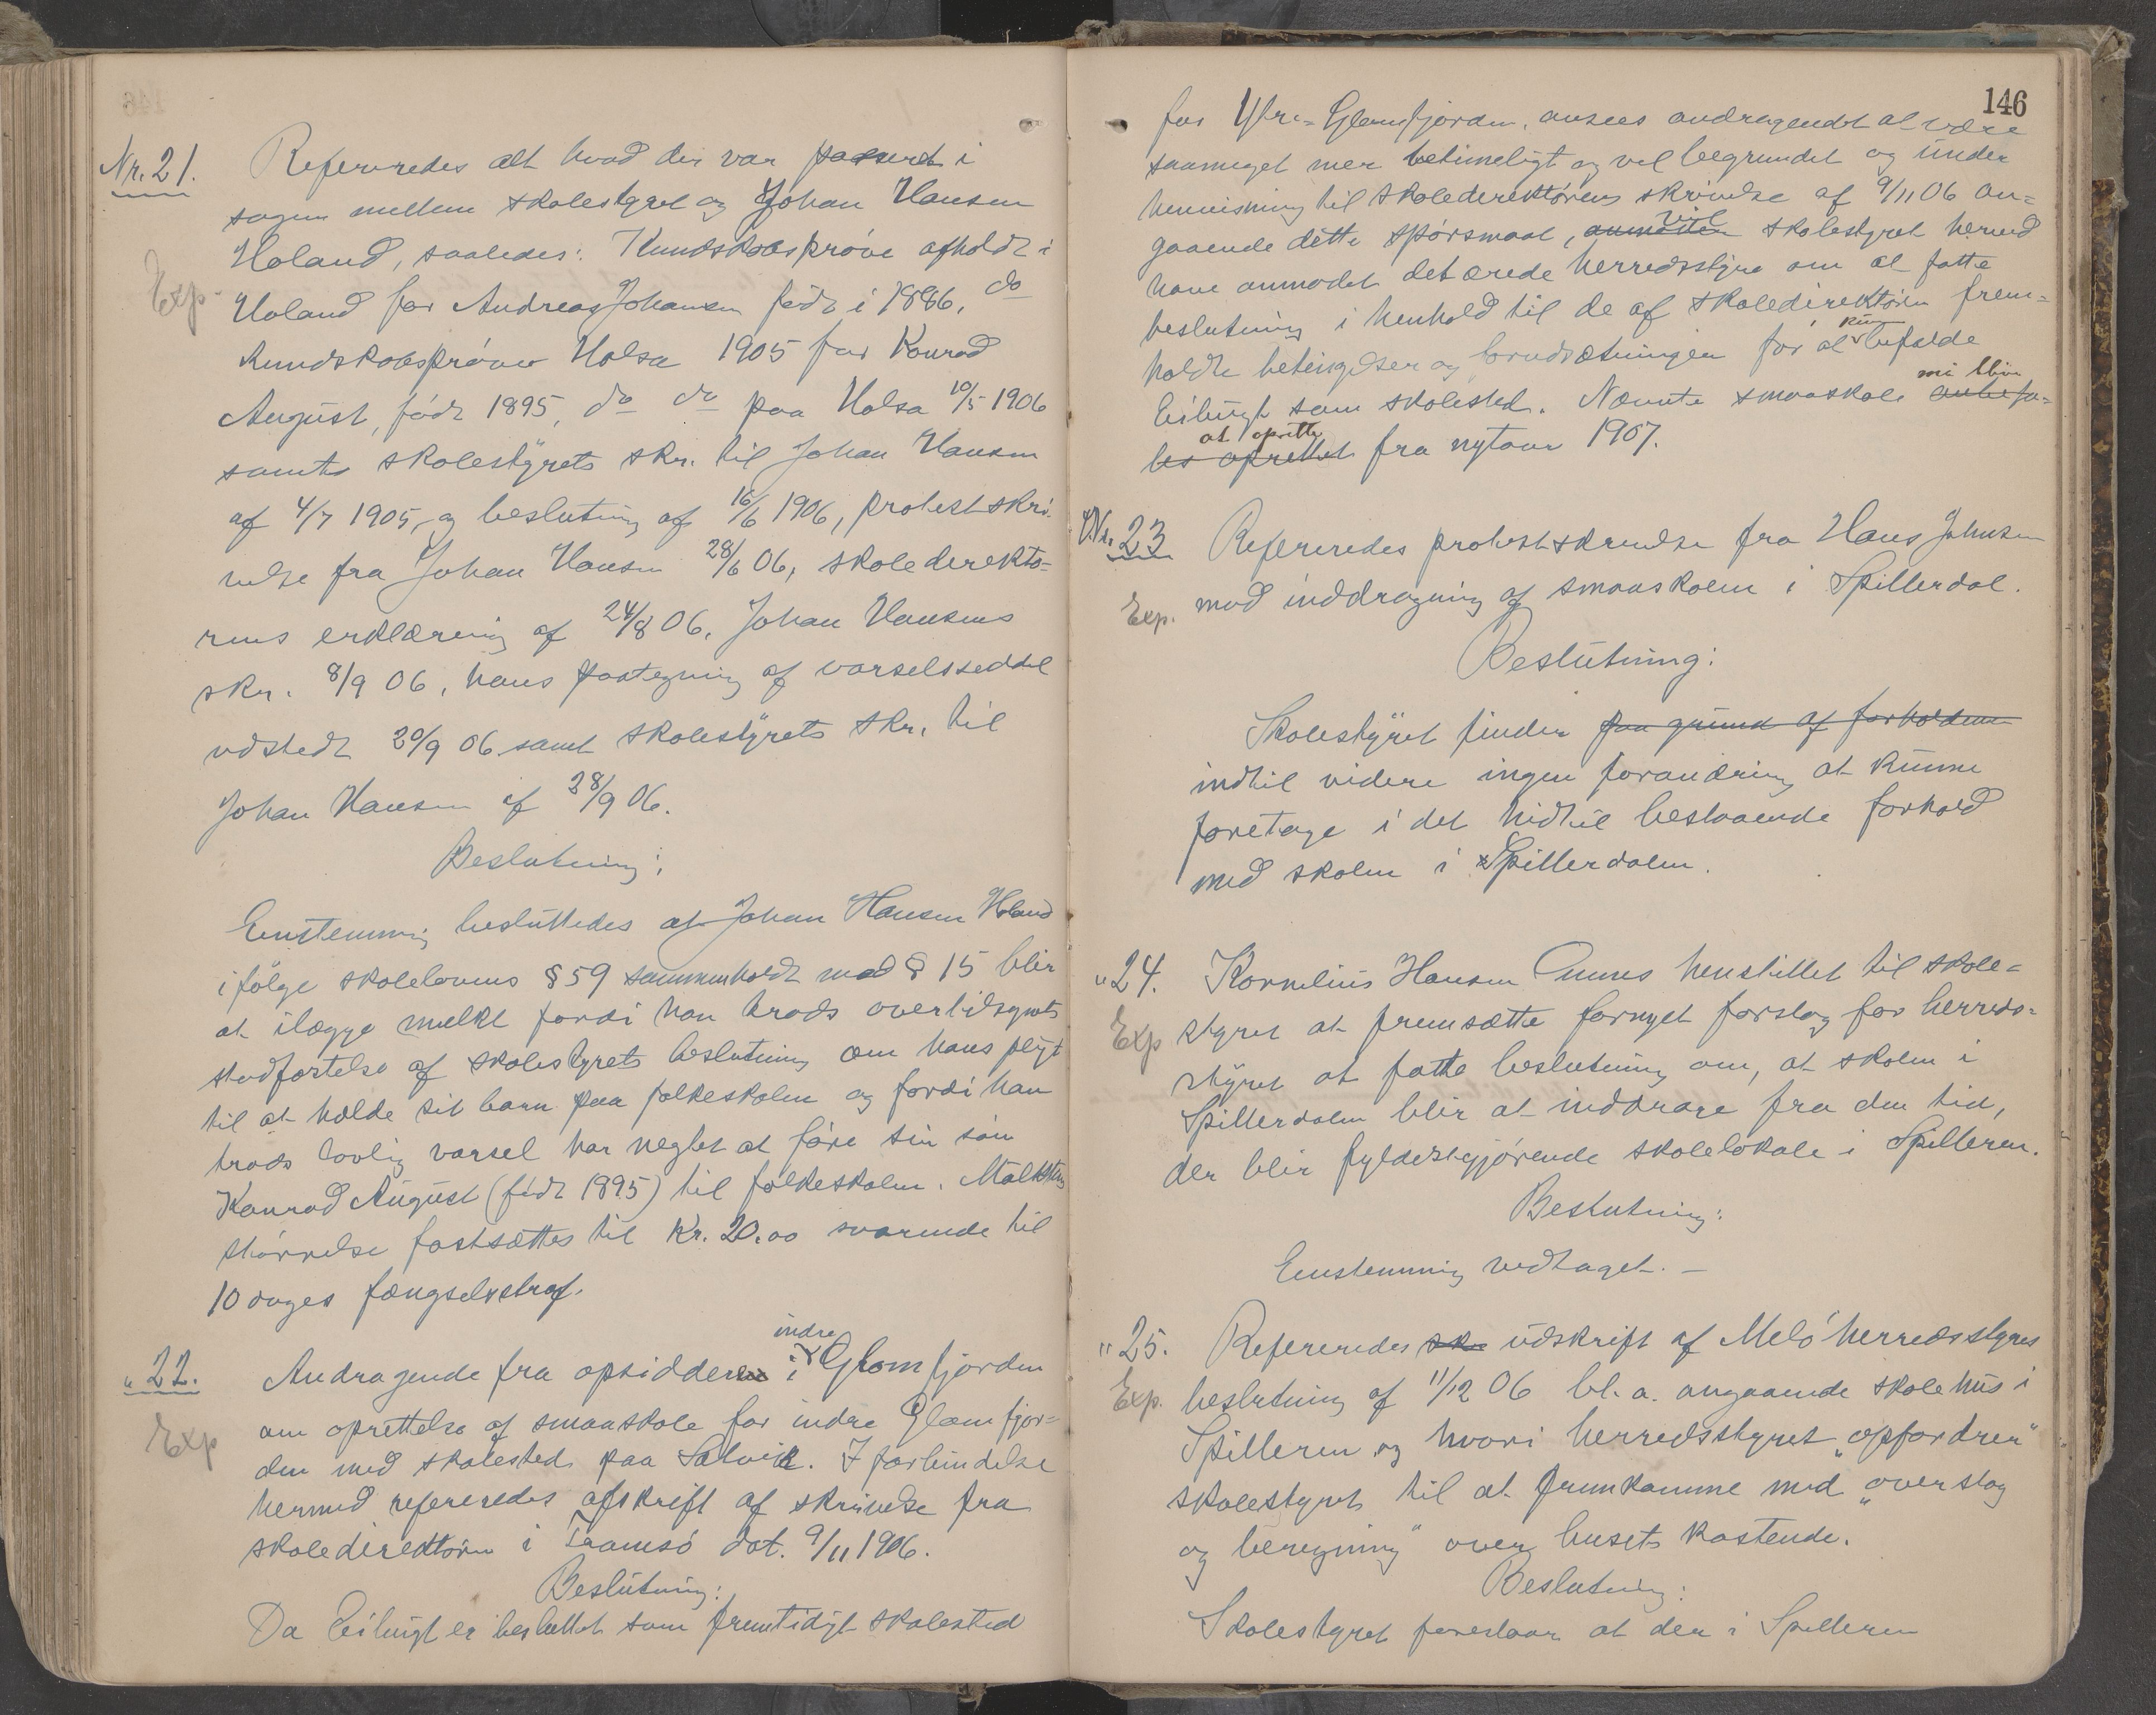 Nr. 21. Refereredes alt hvad der var passeret i
sagen mellem skolestyret og Johan Hansen
Holand, saaledes: Kundskabsprøve afholdt i
Exp.
Holand for Andreas Johansen født i 1886, do
kundskabsprøve Halsa 1905 for Konrad
August, født 1895, do do paa Halsa 10/5 1906
samt skolestyrets skr. til Johan Hansen
af 4/7 1905, og beslutning af 16/6 1906, protestskri-
velse fra Johan Hansen 28/6 06, skoledirektø-
rens erklæring af 24/8 06, Johan Hansens
skr. 8/9 06, hans paategning af varselsseddel
udstedt 20/9 06 samt skolestyrets skr. til
Johan Hansen af 28/9 06.
Beslutning:
Enstemmig besluttedes at Johan Hansen Holand
ifølge skolelovens § 59 sammenholdt med § 15 blir
at ilægge mulkt fordi han trods overtilsynets
stadfæstelse af skolestyrets beslutning om hans pligt
til at holde sit barn paa folkeskolen og fordi han
trods lovlig varsel har negtet at føre sin søn
Konrad August (født 1895) til folkeskolen. Mulktens
størrelse fastsættes til Kr. 20.00 svarende til
10 dages fængselsstraf.
indre
" 22. Andragende fra opsiddere i Glomfjorden
Exp
om oprettelse af smaaskole for indre Glomfjor-
den med skolested paa Selvik. I forbindelse
hermed refereredes afskrift af skrivelse fra
skoledirektøren i Tromsø dat. 9/11 1906.
Beslutning:
Da Eilingt er besluttet som fremtidigt skolested
146
for Ytre-Glomfjorden, ansees andragendet at være
saameget mer betimeligt og vel begrundet og under
henvisning til skoledirektørens skrivelse af 9/11 06 an-
gaaende dette spørsmaal, anmoder vil skolestyret herved
have anmodet det ærede herredsstyre om at fatte
beslutning i henhold til de af skoledirektøren frem-
holdte betingelser og forudsætninger for at kun befalde
Eilingt som skolested. Nævnte smaaskole anbefa- mi blive
les oprettet at oprette fra nytaar 1907.
Nr. 23 Refereredes protestskrivelse fra Hans Johnsen
Exp. mod inddragning af smaaskolen i Spillerdal.
Beslutning:
Skolestyret finder paa grund af forholdene
indtil videre ingen forandring at kunne
foretage i det hidtil bestaaende forhold
med skolen i Spillerdalen.
" 24. Kornelius Hansen Ænnes henstillet til skole-
Exp styret at fremsætte fornyet forslag for herreds-
styret at fatte beslutning om, at skolen i
Spillerdalen blir at inddrage fra den tid,
der blir fyldestgjørende skolelokale i Spilleren.
Beslutning:
Enstemmig vedtaget. –
" 25. Refereredes skr udskrift af Melø herredsstyres
Exp. beslutning af 11/12 06 bl. a. angaaende skolehus i
Spilleren og hvori herredsstyret "opfordrer"
skolestyret til at fremkomme med "overslag
og beregning" over husets kostende.
Beslutning:
Skolestyret foreslaar at der i Spilleren